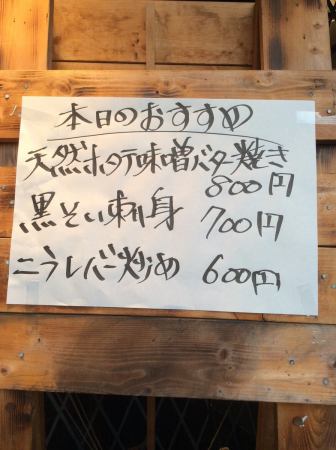 本日のおすすめ
天然ホタテ味噌バター焼き
800円
黒そい刺身 700円
ニラレバー炒め 600円